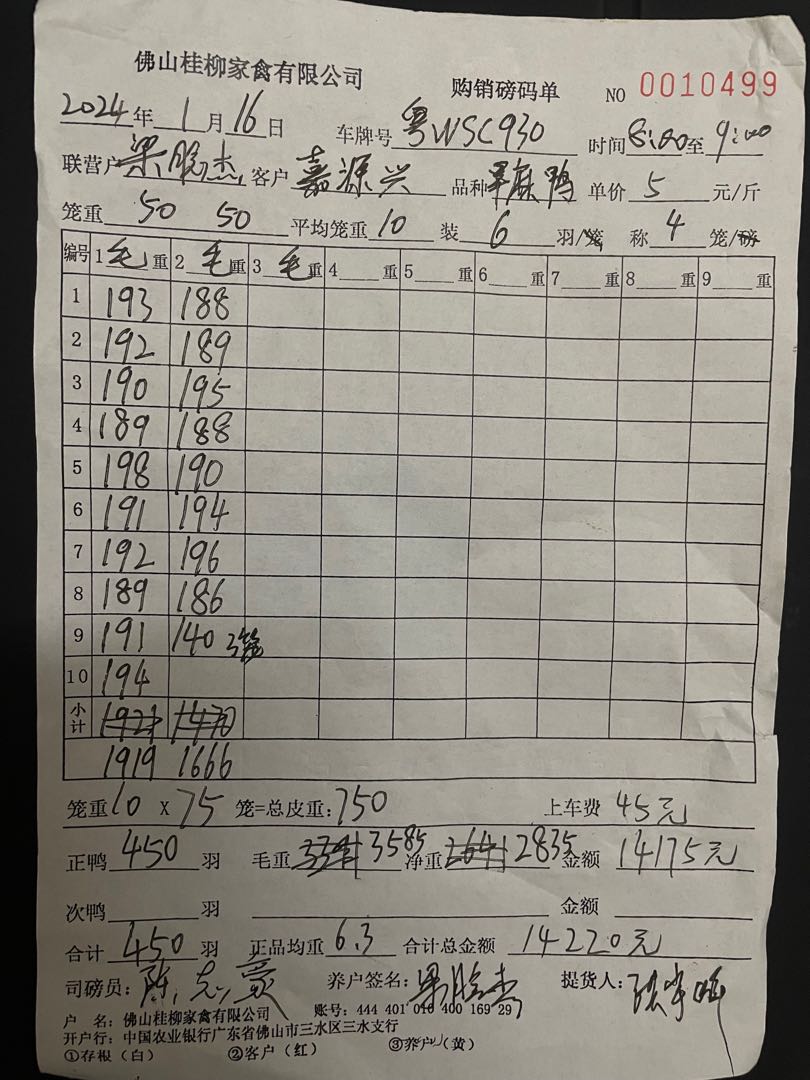 佛山桂柳家禽有限公司 购销磅码单 NO 0010499
2024年1月16日 车牌号 粤WSC930 时间8:00至9:00
联营户 梁聪杰 客户 嘉源兴 品种 麻鸭 单价 5 元/斤
笼重 50 50 平均笼重 10 装 6 羽/笼 称 4 笼/磅
编号 1 毛 重 2 毛 重 3 毛 重 4 重 5 重 6 重 7 重 8 重 9 重
1 193 188
2 192 189
3 190 195
4 189 188
5 198 190
6 191 194
7 192 196
8 189 186
9 191 140 3笼
10 194
小计
1919 1666
笼重 10 X 75 笼=总皮重: 750 上车费 45元
正鸭 450 羽 毛重 3585 净重 2835 金额 14175元
次鸭 羽 金额
合计 450 羽 正品均重 6.3 合计总金额 14220元
司磅员: 养户签名: 梁聪杰 提货人:
户 名: 佛山桂柳家禽有限公司 账号: 444 401 010 400 169 29
开户行: 中国农业银行广东省佛山市三水区三水支行
①存根（白） ②客户（红） ③养户（黄）